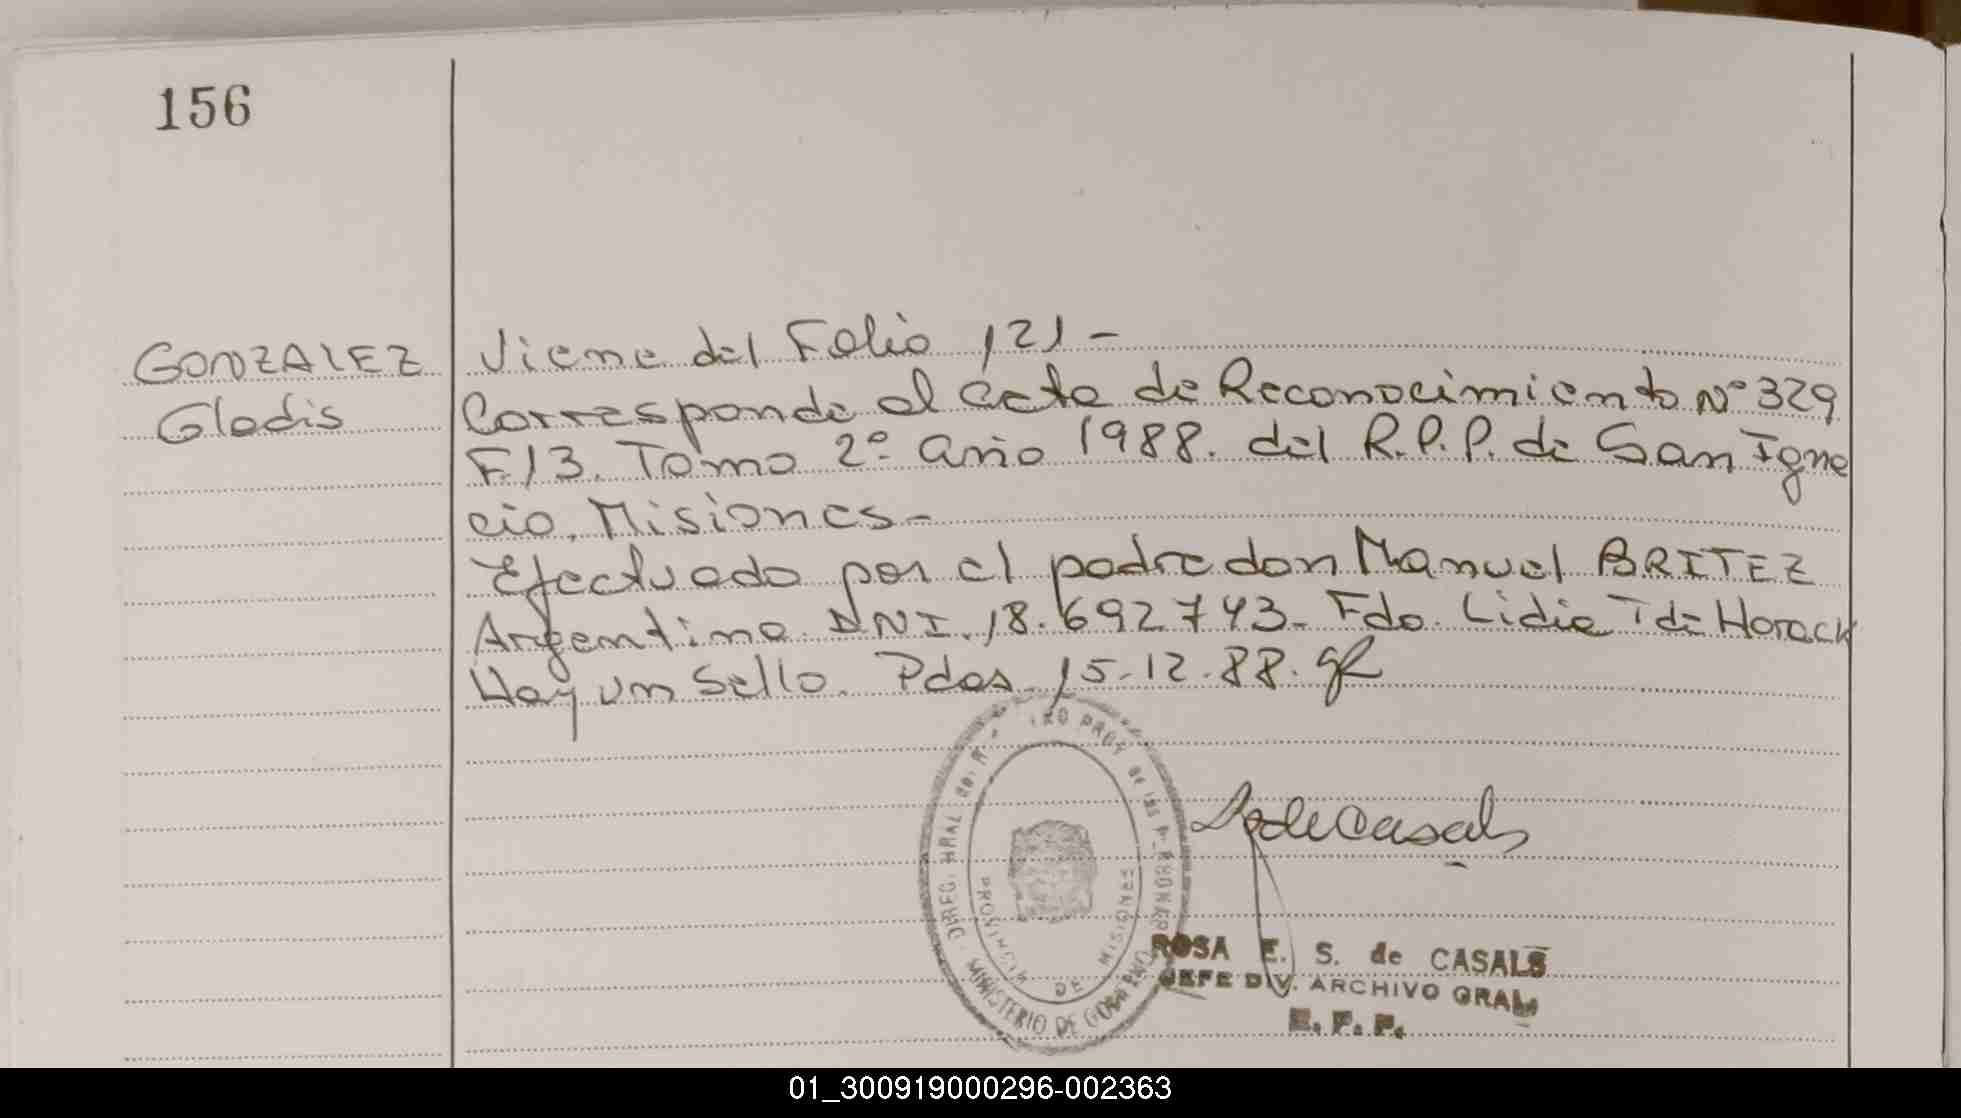 156
GONZALEZ
Gladis
Viene del Folio 121 -
Corresponde al acta de Reconocimiento Nº 329
F.13. Tomo 2º Año 1988. del R.P.P. de San Igna
cio, Misiones -
Efectuado por el padre don Manuel BRITEZ
Argentino DNI. 18.692743. Fdo. Lidia T de Horack
Hay un Sello. Pdas 15-12-88.
DIREC. GRAL de
PROV de las PERSONAS
MINISTERIO DE GOBIERNO
PROVINCIA DE MISIONES
S de Casals
ROSA E. S. de CASALS
JEFE DIV. ARCHIVO GRAL.
01_300919000296-002363